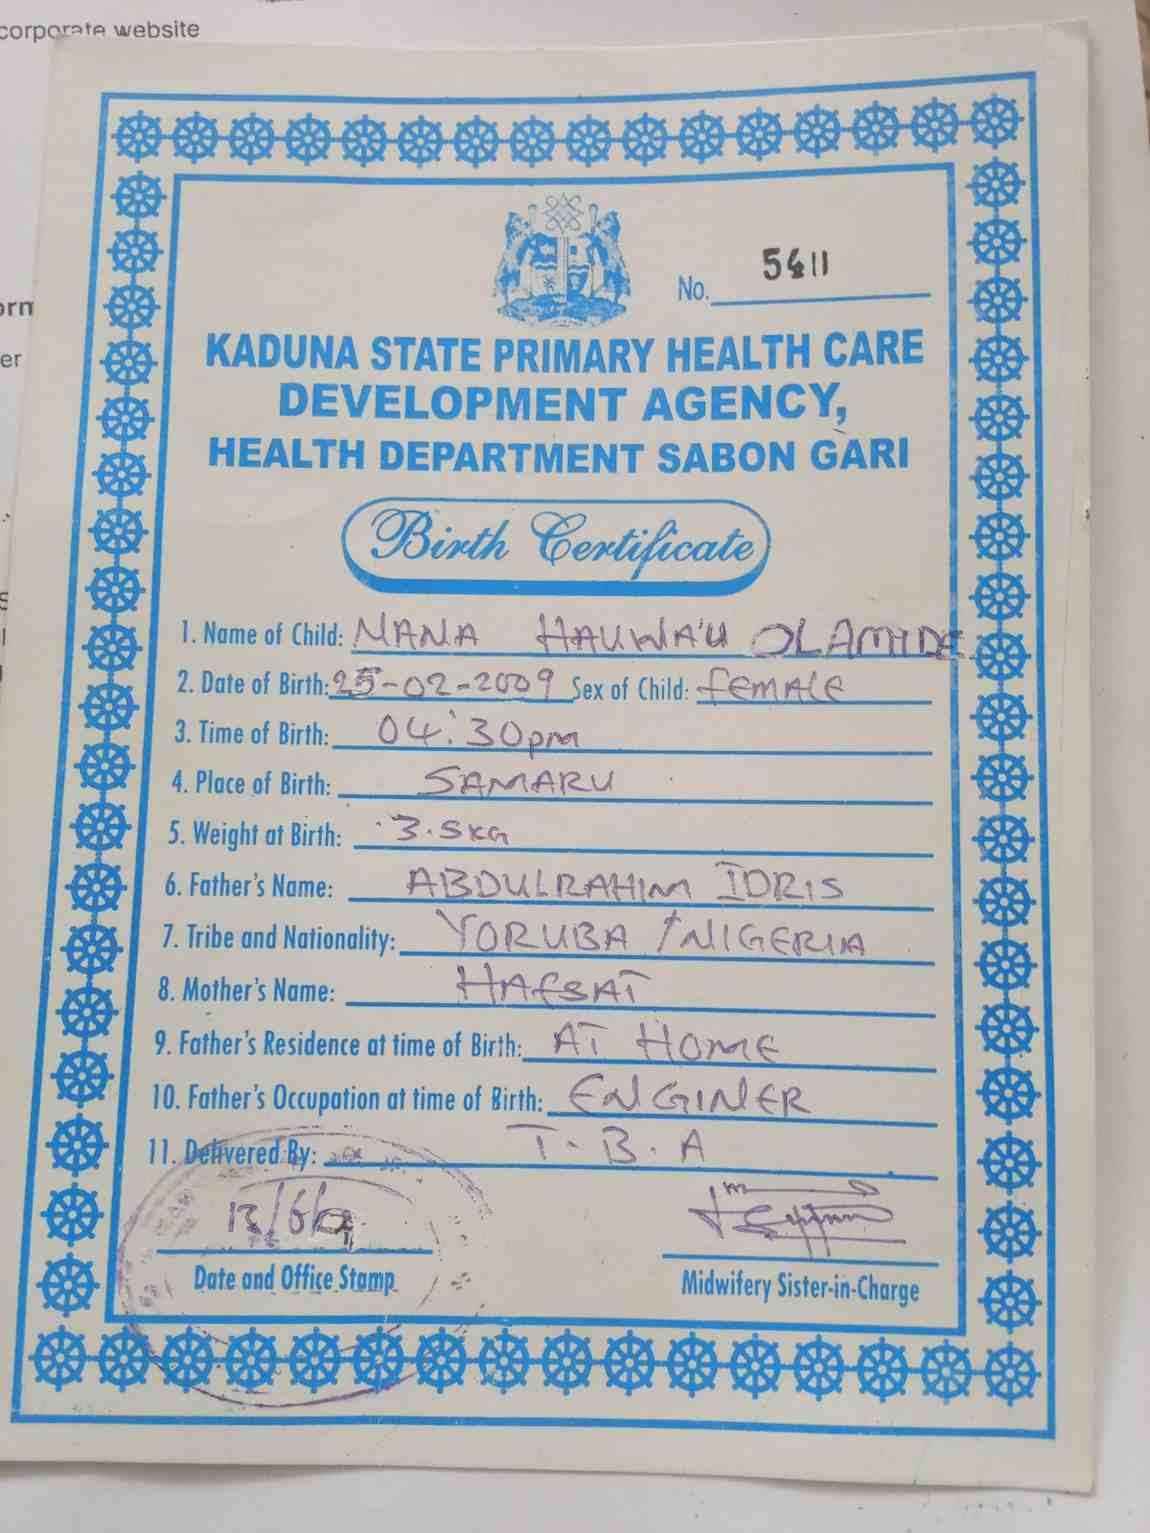 corporate website
orm
er
No. 5411
KADUNA STATE PRIMARY HEALTH CARE
DEVELOPMENT AGENCY,
HEALTH DEPARTMENT SABON GARI
Birth Certificate
1. Name of Child: NANA HAUWA'U OLAMIDE
2. Date of Birth: 25-02-2009 Sex of Child: female
3. Time of Birth: 04:30pm
4. Place of Birth: SAMARU
5. Weight at Birth: 3.5KG
6. Father's Name: ABDULRAHIM IDRIS
7. Tribe and Nationality: YORUBA / NIGERIA
8. Mother's Name: HAFSAT
9. Father's Residence at time of Birth: AT HOME
10. Father's Occupation at time of Birth: ENGINER
11. Delivered By: T.B.A
Date and Office Stamp
Midwifery Sister-in-Charge